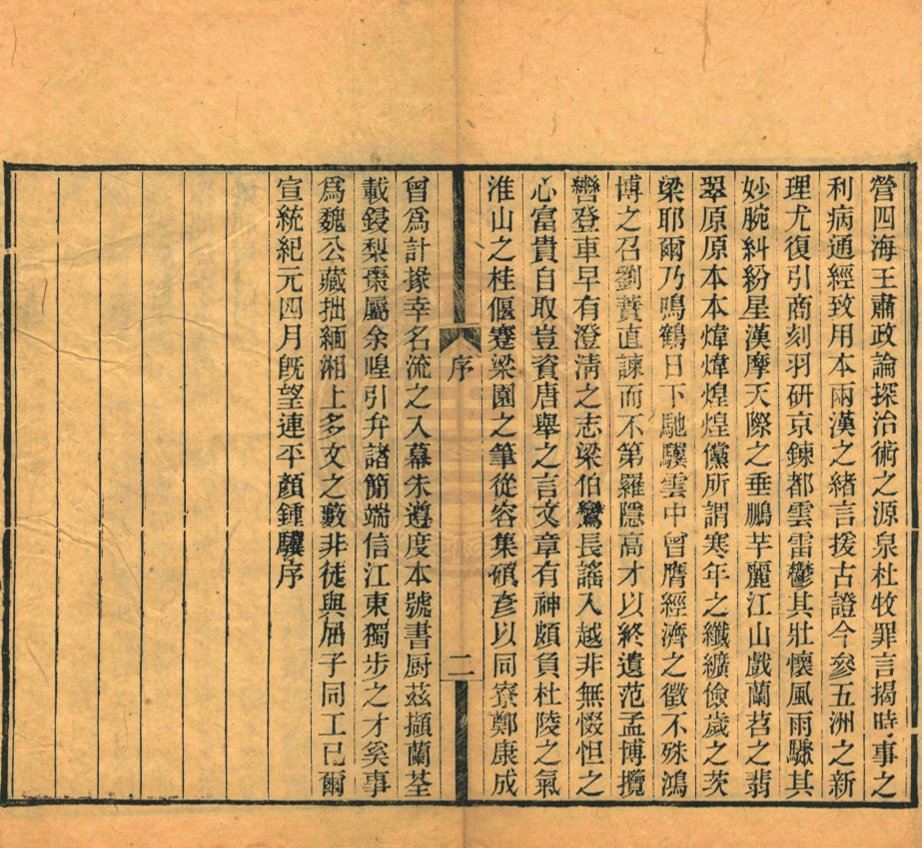 管四海王肅政論探治術之源泉杜牧罪言揭時事之
利病通經致用本兩漢之緒言援古證今參五洲之新
理尤復引商刻羽研京鍊都雲雷鬱其壯懷風雨驟其
妙腕糾紛星漢摩天際之垂鵬芊麗江山戲蘭苕之翡
翠原原本本煒煒煌煌儻所謂寒年之纖纊儉歲之茨
梁耶爾乃鳴鶴日下馳驥雲中曾膺經濟之徵不殊鴻
博之召劉蕡直諫而不第羅隱高才以終遺范孟博攬
轡登車早有澄淸之志梁伯鸞長謠入越非無惙怛之
心富貴自取豈資唐舉之言文章有神頗負杜陵之氣
淮山之桂偃蹇梁園之筆從容集碩彥以同寮鄭康成
曾爲計掾幸名流之入幕朱遵度本號書厨茲擷蘭荃
載鋟梨棗屬余喤引弁諸簡端信江東獨步之才奚事
爲魏公藏拙緬湘上多文之藪非徒與屈子同工已爾
宣統紀元四月旣望連平顏鍾驥序
序
二